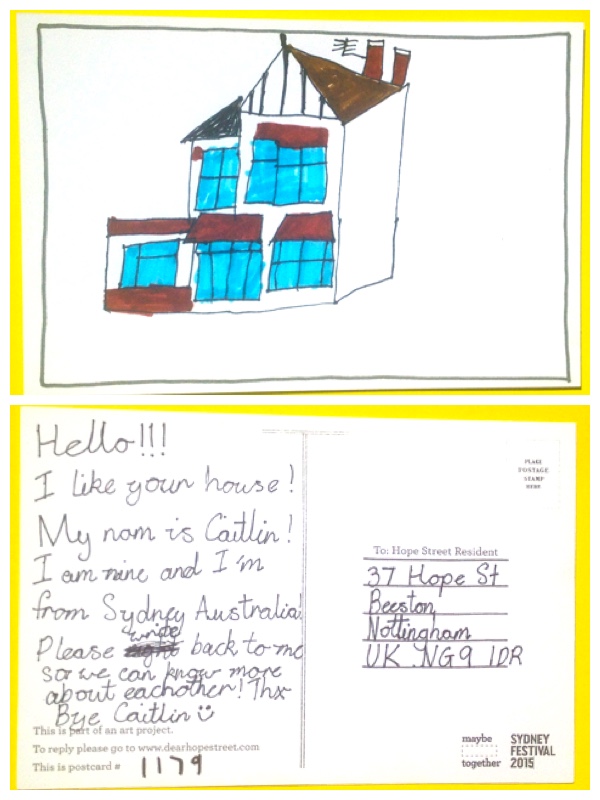 Hello!!!
I like your house!
My nam is Caitlin!
I am nine and I'm
from Sydney Australia!
write
Please back to me
so we can know more
about eachother! Thx
Bye Caitlin
This is part of an art project.
To reply please go to www.dearhopestreet.com
This is postcard # 1179
PLACE
POSTAGE
STAMP
HERE
To: Hope Street Resident
37 Hope St
Beeston
Nottingham
UK NG9 1DR
maybe
together
SYDNEY
FESTIVAL
2015